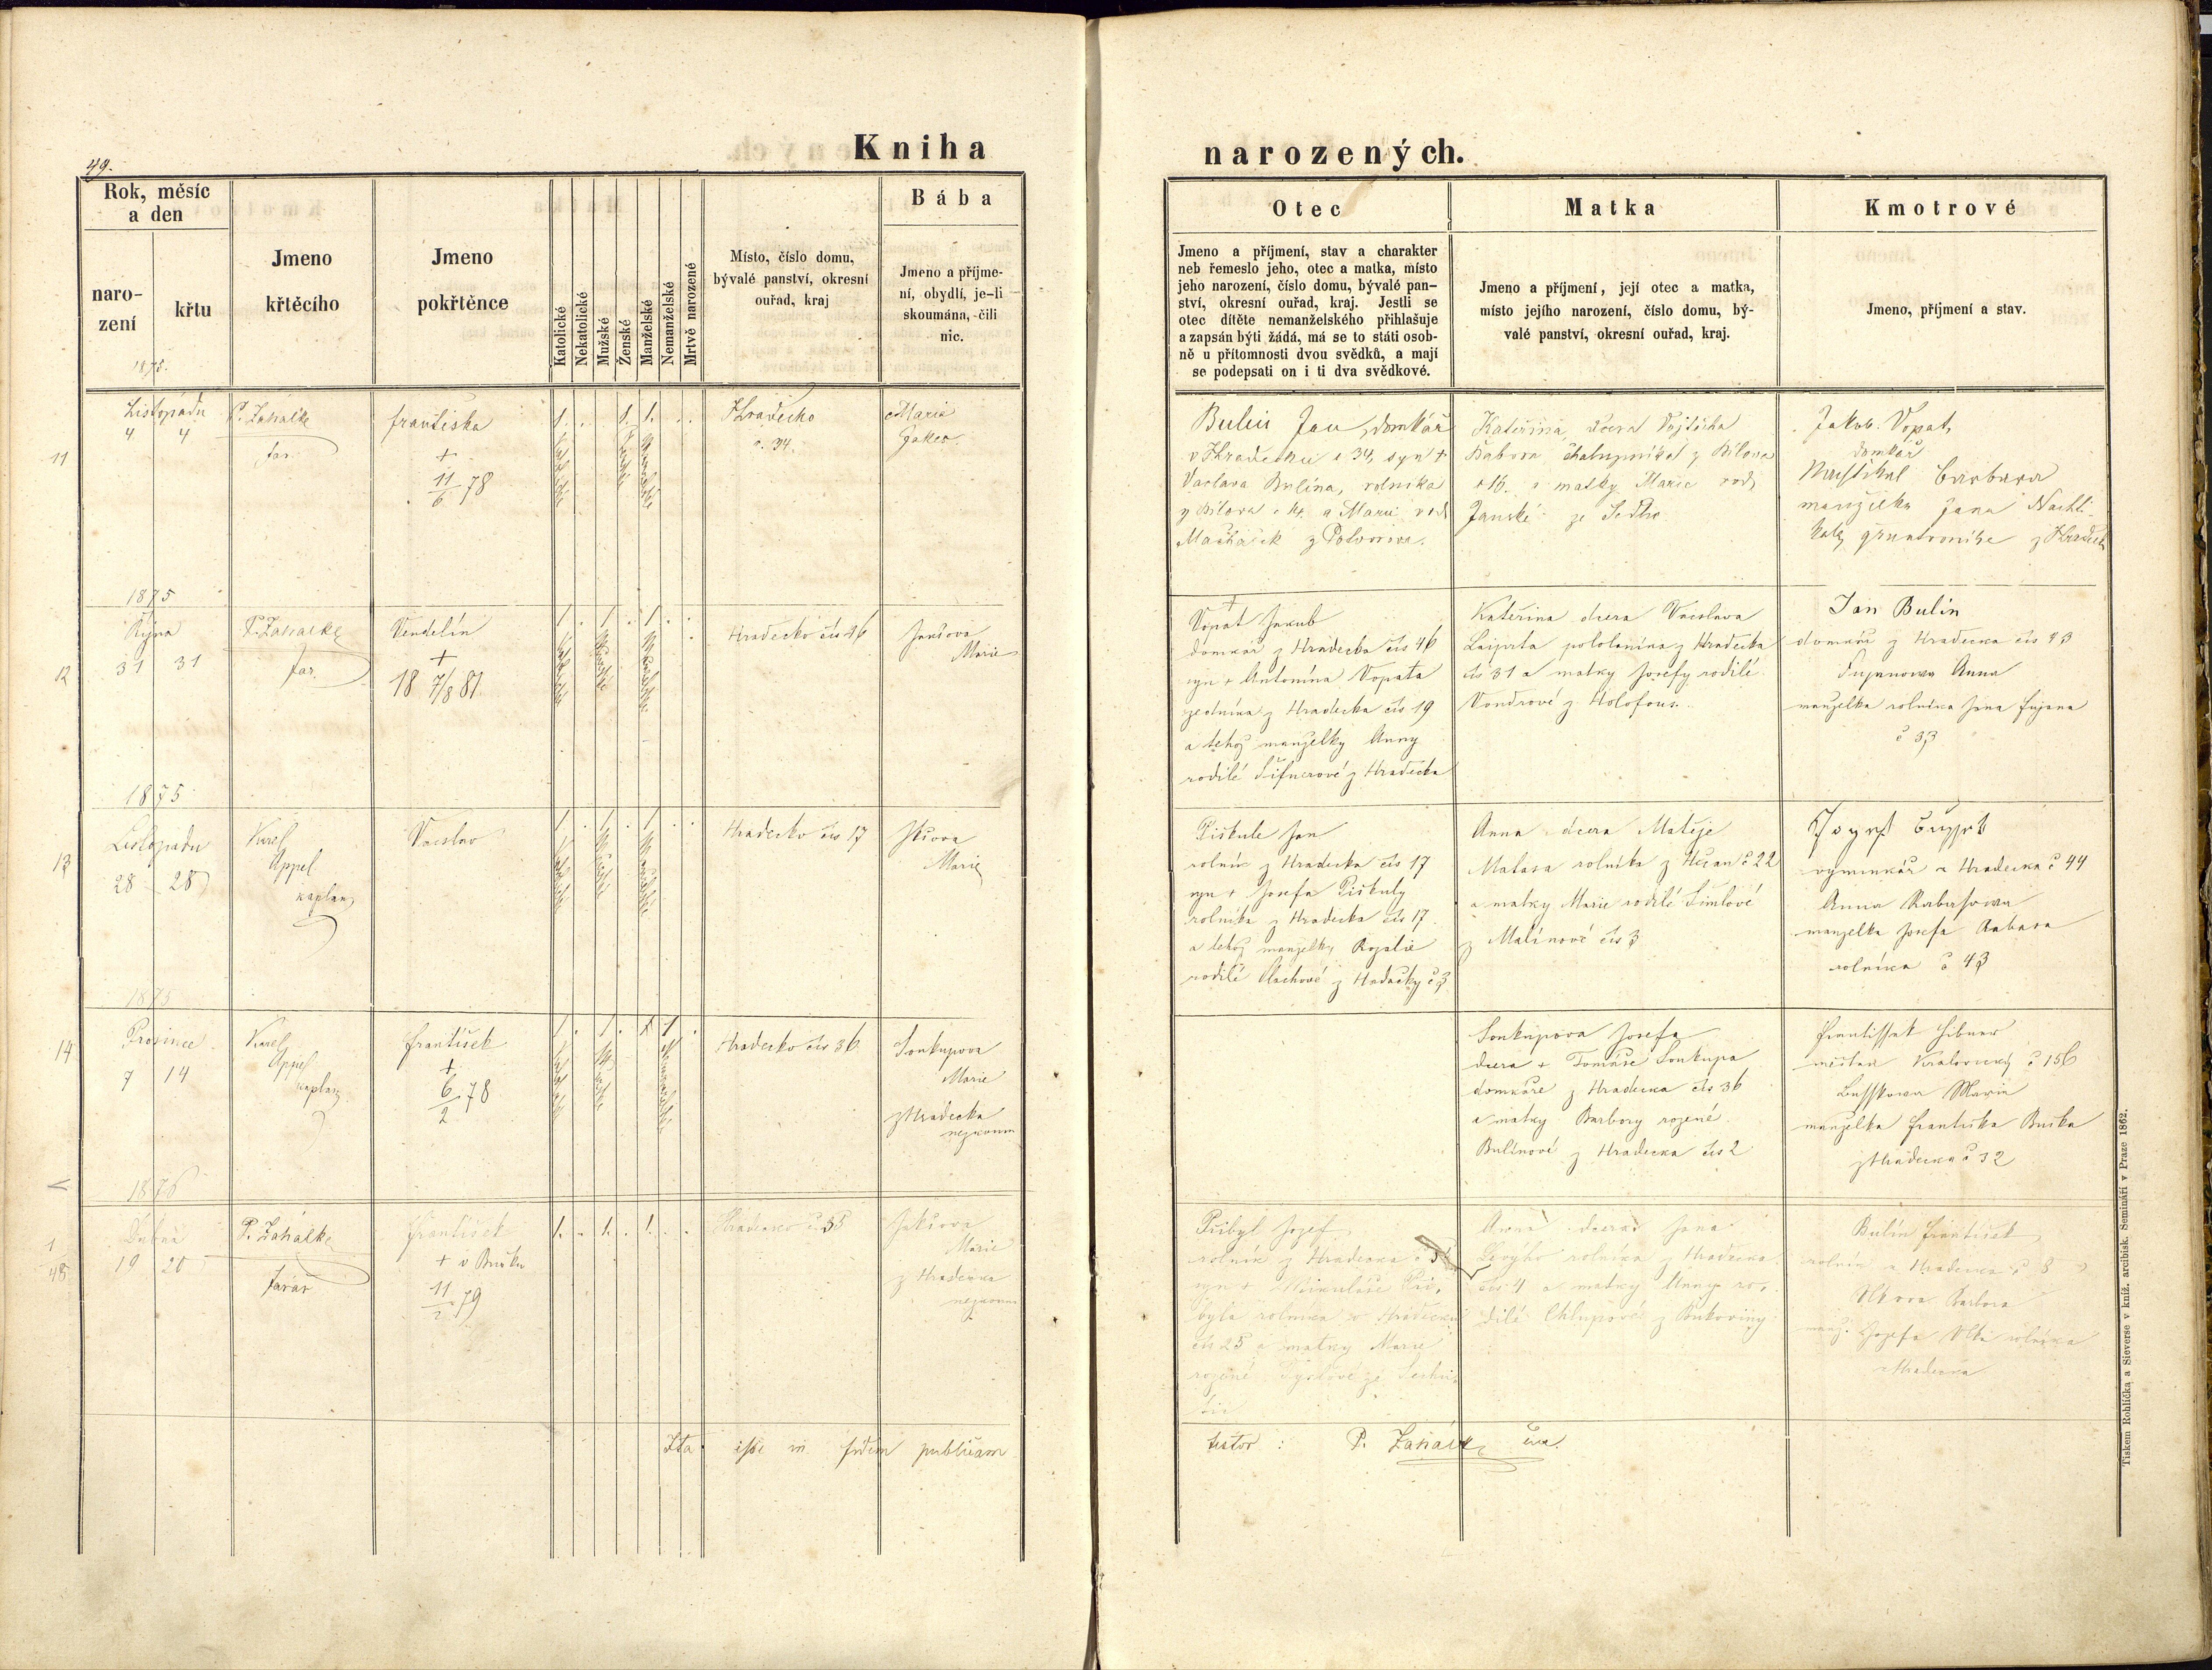 49.
Kniha
narozených.
Rok, měsíc
a den
naro-
zení
křtu
1875.
Jmeno
křtěcího
Jmeno
pokřtěnce
Katolické
Nekatolické
Mužské
Ženské
Manželské
Nemanželské
Mrtvě narozené
Místo, číslo domu,
bývalé panství, okresní
ouřad, kraj
Bába
Jmeno a příjme-
ní, obydlí, je-li
skoumána, čili
nic.
Otec
Jmeno a příjmení, stav a charakter
neb řemeslo jeho, otec a matka, místo
jeho narození, číslo domu, bývalé pan-
ství, okresní ouřad, kraj. Jestli se
otec dítěte nemanželského přihlašuje
a zapsán býti žádá, má se to státi osob-
ně u přítomnosti dvou svědků, a mají
se podepsati on i ti dva svědkové.
Matka
Jmeno a příjmení, její otec a matka,
místo jejího narození, číslo domu, bý-
valé panství, okresní ouřad, kraj.
Kmotrové
Jmeno, příjmení a stav.
11
Listopadu
4 4
P. Zahálka
far.
Františka
+
11/6 78
1. . . 1. 1. . .
Hradecko
č. 34.
Marie
Bulín Jan, domkář
v Hradecku č 34, syn +
Václava Bulína, rolníka
z Bílova a Marie rod.
z Potvorova.
Kateřina, dcera Vojtěcha
chalupníka z Bílova
č 16. a matky Marie rod.
Janské ze Sedlce
Jakub Vopat,
domkář
Barbara
manželka Jana Nachli-
z Hradecka
1875
12
Října
31 31
P. Zahálka
far.
Vendelín
+
18 7/8 81
1 . 1 . 1 . .
Hradecko čís 46
Jakšova
Marie
Vopat Jakub
domkář z Hradecka čís 46
syn + Antonína Vopata
zedníka z Hradecka čís 19
a tehož manželky Anny
rodilé Šifnerové z Hradecka
Kateřina dcera Vácslava
pololaníka z Hradecka
čís 31 a matky Josefy rodilé
Vondrové z Holofous.
Jan Bulín
domkář z Hradecka čís 23
Anna
manželka rolníka Jana
č 33
1875
13
Listopadu
28 28
Karel
Appel
kaplan
Vácslav
1 . 1 . 1 . .
Hradecko čís 17
Jakšova
Marie
Piškule Jan
rolník z Hradecka čís 17
syn + Josefa Piškuly
rolníka z Hradecka čís 17
a tehož manželky Rozalie
rodilé z Hadačky č 3
Anna dcera Matěje
rolníka z Hůzan č 22
a matky Marie rodilé Šimlové
z Malínové čís 3
Josef
vyminkář z Hradecka č 44
Anna
manželka Josefa
rolníka č 43
1875
14
Prosince
7 14
Karel
Appel
kaplan
František
+
6/2 78
1 . 1 . 1 1 .
Hradecko čís 36
Soukupova
Marie
z Hradecka
nezkoum
Soukupova Josefa
dcera + Tomáše Soukupa
domkáře z Hradecka čís 36
a matky Barbory rozené
Bulínové z Hradecka čís 2
Frantissek
měštan Kralovický č 156
Marie
manželka Františka
z Hradecka č 32
1876
1
48
Dubna
19 20
P. Zahálka
farář
František
+
11/2 79
1. . 1. . 1. . .
Hradecko č. 35
Jakšova
Marie
z Hradecka
nezkoum
Přibyl Josef
rolník z Hradecka č
syn + Mikuláše Při-
byla rolníka z Hradecka
čís 25 a matky Marie
rozené
Anna dcera Jana
rolníka z Hradecka
čís 4 a matky Anny ro-
dilé Chlupové z Bukoviny
Bulín František
rolník z Hradecka č 8
Vlkova Barbora
manž. Josefa Vlka rolníka
Hradecka
Ita esse in fidem publicam
testor : P. Zahálka
Tiskem Rohlíčka a Sieverse v kníž. arcibisk. Semináři v Praze 1862.